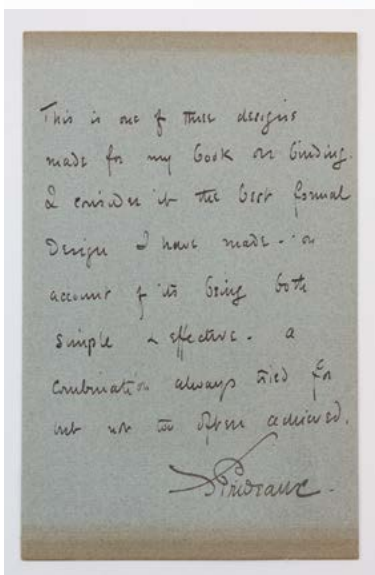 This is one of three designs
made for my book on binding.
I consider it the best formal
Design I have made - on
account of its being both
simple & effective - a
combination always tried for
but not too often achieved.
SPrideaux.